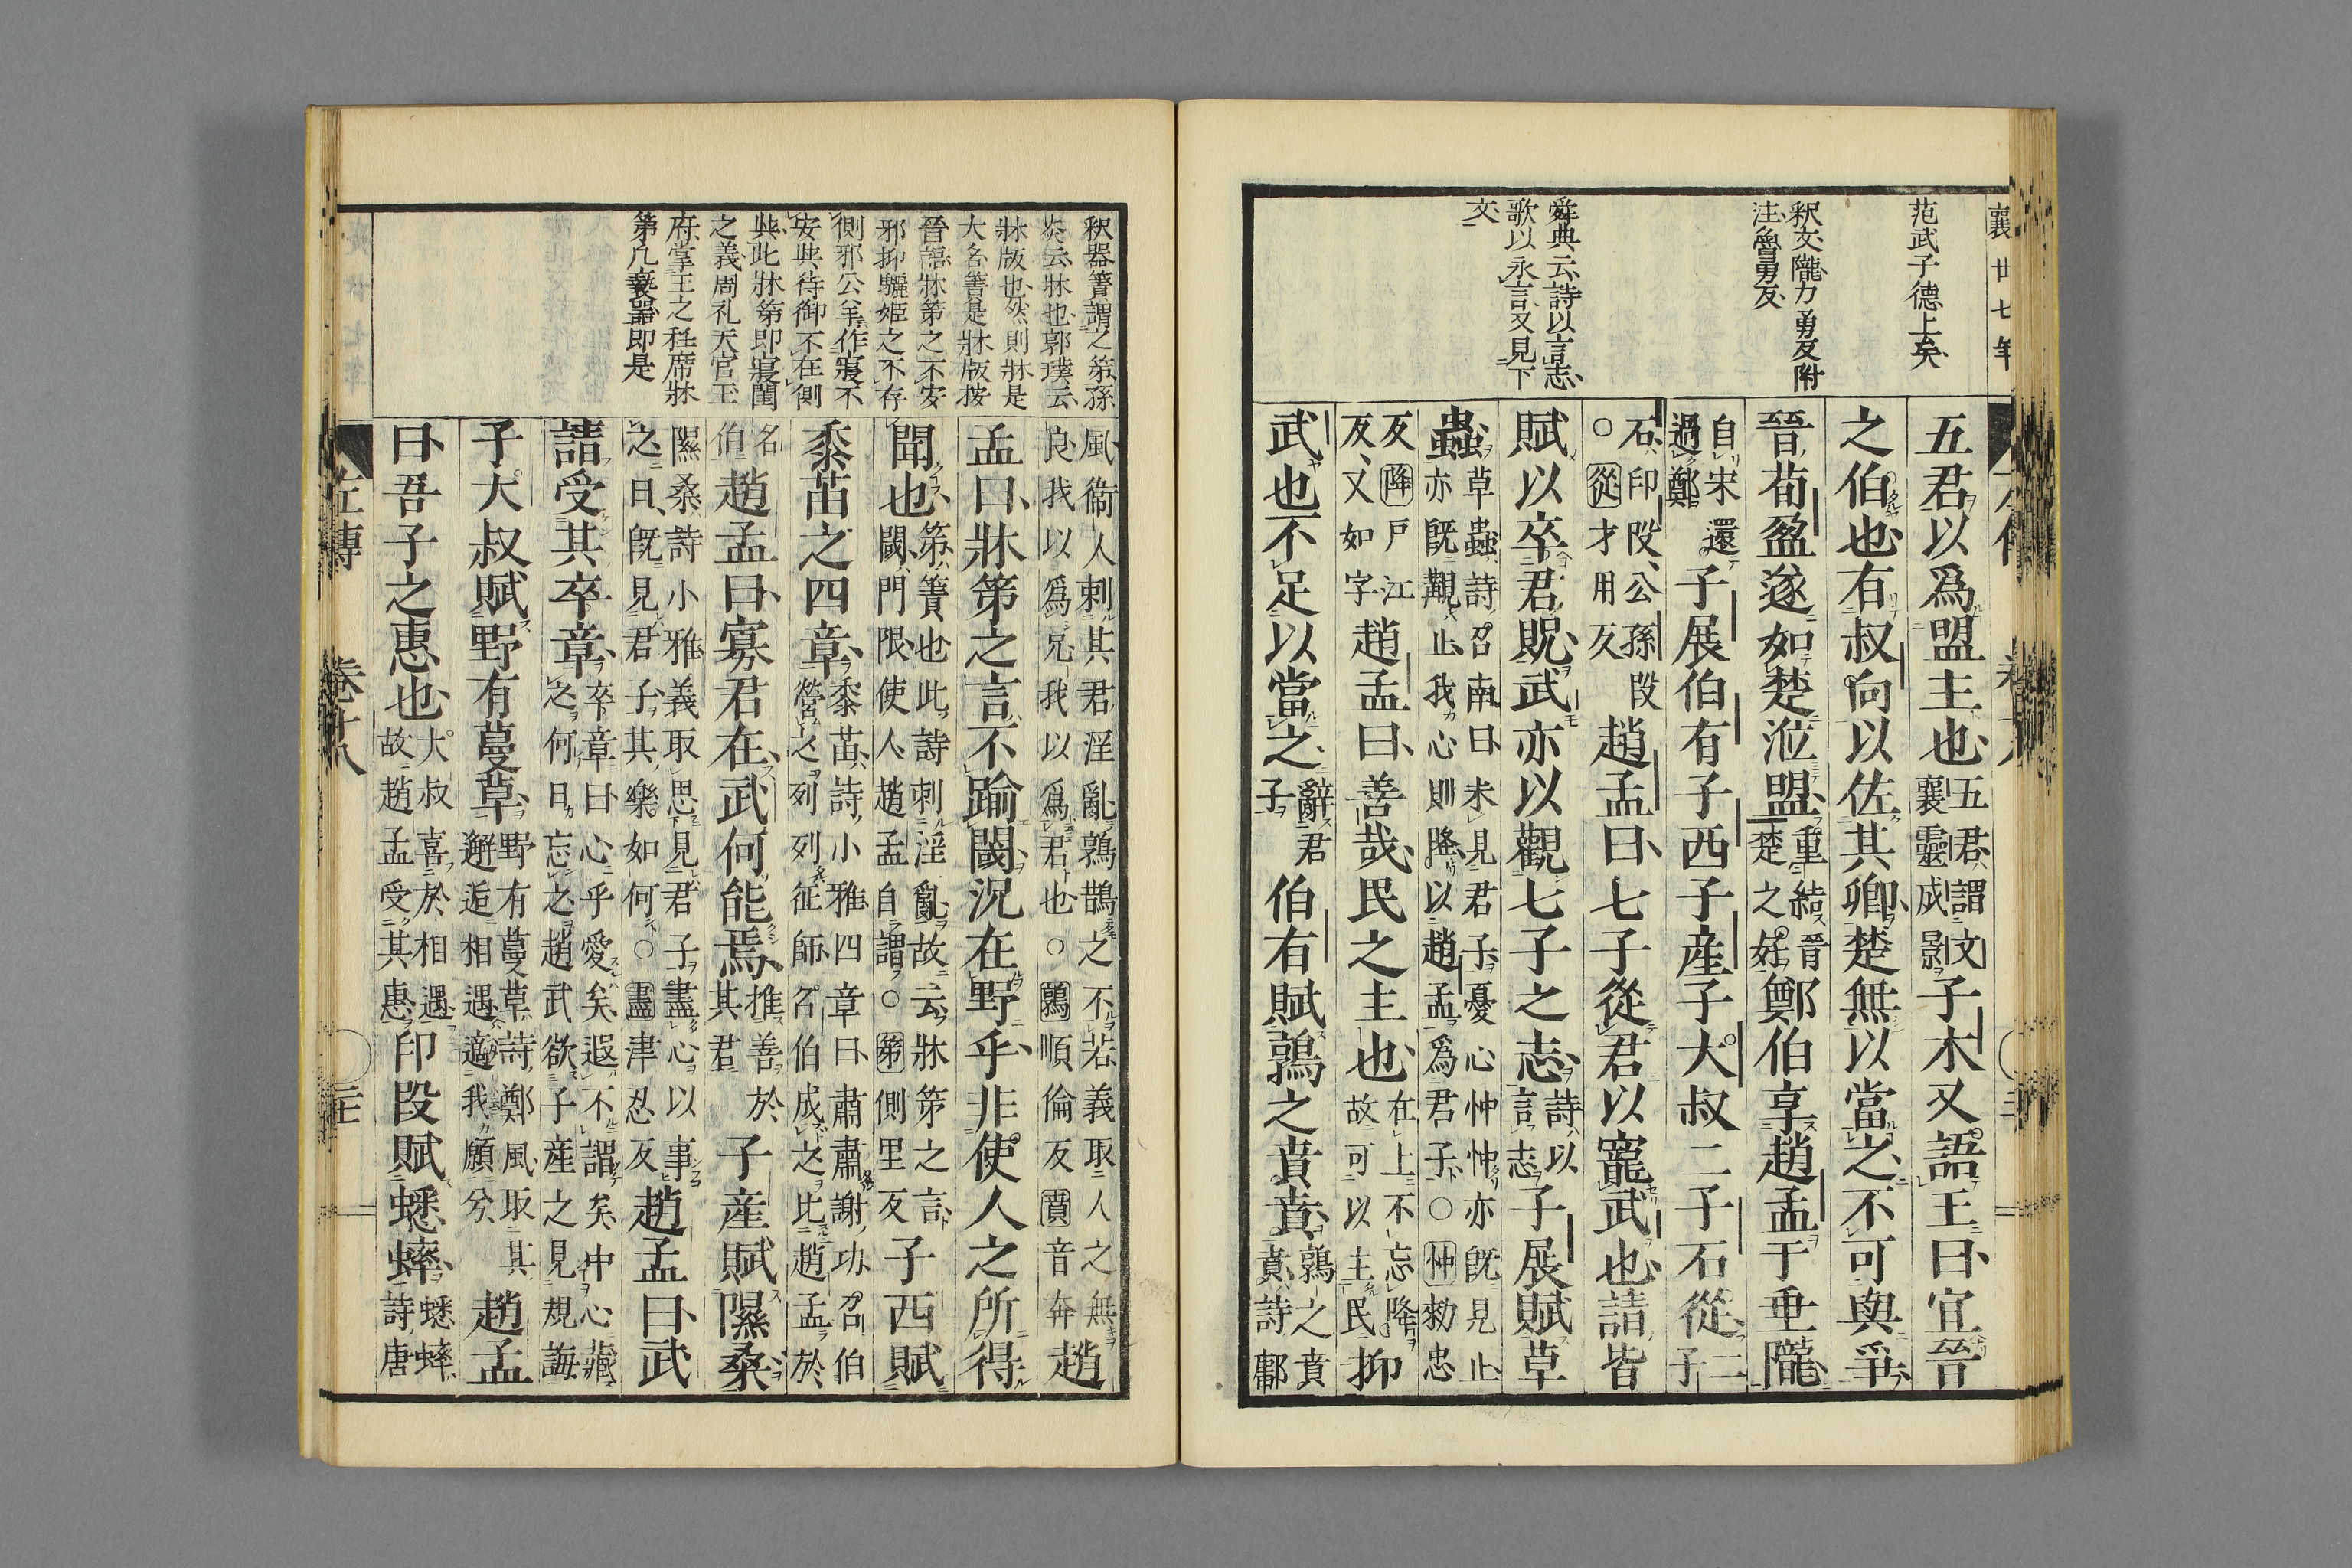 襄廿七年
范武子德上矣
釈文隴力勇反附
注魯勇反
舜典云詩以言志
歌以永言又見下
文
五君以爲盟主也五君謂文襄靈成景子木又語王曰宜晉
之伯也有叔向以佐其卿楚無以當之不可與爭
晉荀盈遂如楚涖盟重結晉楚之好鄭伯享趙孟于垂隴
自宋還過鄭子展伯有子西子産子大叔二子石從二子
石印段公孫段○從才用反趙孟曰七子從君以寵武也請皆
賦以卒君貺武亦以觀七子之志詩以言志子展賦草
蟲草蟲詩召南曰未見君子憂心忡忡亦既見止亦既覯止我心則降以趙孟爲君子○忡勑忠
反降戸江反又如字趙孟曰善哉民之主也在上不忘降故可以主民抑
武也不足以當之辭君子伯有賦鶉之賁賁鶉之賁賁詩鄘
風衞人刺其君淫亂鶉鵲之不若義取人之無良我以爲兄我以爲君也○鶉順倫反賁音奔趙
孟曰牀笫之言不踰閾況在野乎非使人之所得
聞也笫簀也此詩刺淫亂故云牀笫之言閾門限使人趙孟自謂○笫側里反子西賦
黍苗之四章黍苗詩小雅四章曰肅肅謝功召伯營之列列征師召伯成之比趙孟於召
伯趙孟曰寡君在武何能焉推善於其君子産賦隰桑
隰桑詩小雅義取思見君子盡心以事之曰既見君子其樂如何○盡津忍反趙孟曰武
請受其卒章卒章曰心乎愛矣遐不謂矣中心藏之何日忘之趙武欲子産之見規誨
子大叔賦野有蔓草野有蔓草詩鄭風取其邂逅相遇適我願兮趙孟
曰吾子之惠也大叔喜於相遇故趙孟受其惠印段賦蟋蟀蟋蟀詩唐
釈器簀謂之笫孫
炎云牀也郭璞云
牀版也然則牀是
大名簀是牀版按
晉語牀笫之不安
邪抑驪姫之不存
側邪公羊作寢不
安與待御不在側
與此牀笫即寢閨
之義周礼天官玉
府掌王之衽席牀
第几褻器即是
左傳 卷十八